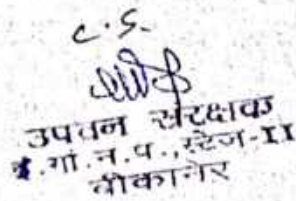 C.S.
उपवन संरक्षक
इ.गां.न.प.,स्टेज-II
बीकानेर